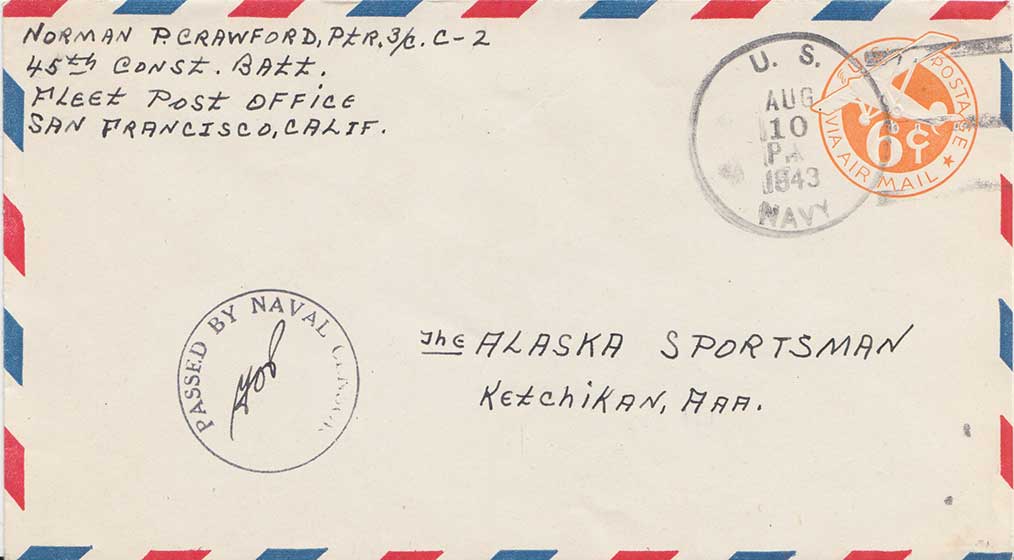 NORMAN P. CRAWFORD, PtR. 3/c. C-2
45th CONST. BAtt.
FLEEt POSt OFFICE
SAN FRANCISCO, CALIF.
U. S.
AUG
10
1943
NAVY
U.S. POSTAGE
6¢
VIA AIR MAIL
PASSED BY NAVAL
The ALASKA SPORTSMAN
KEtchiKAN, AAA.